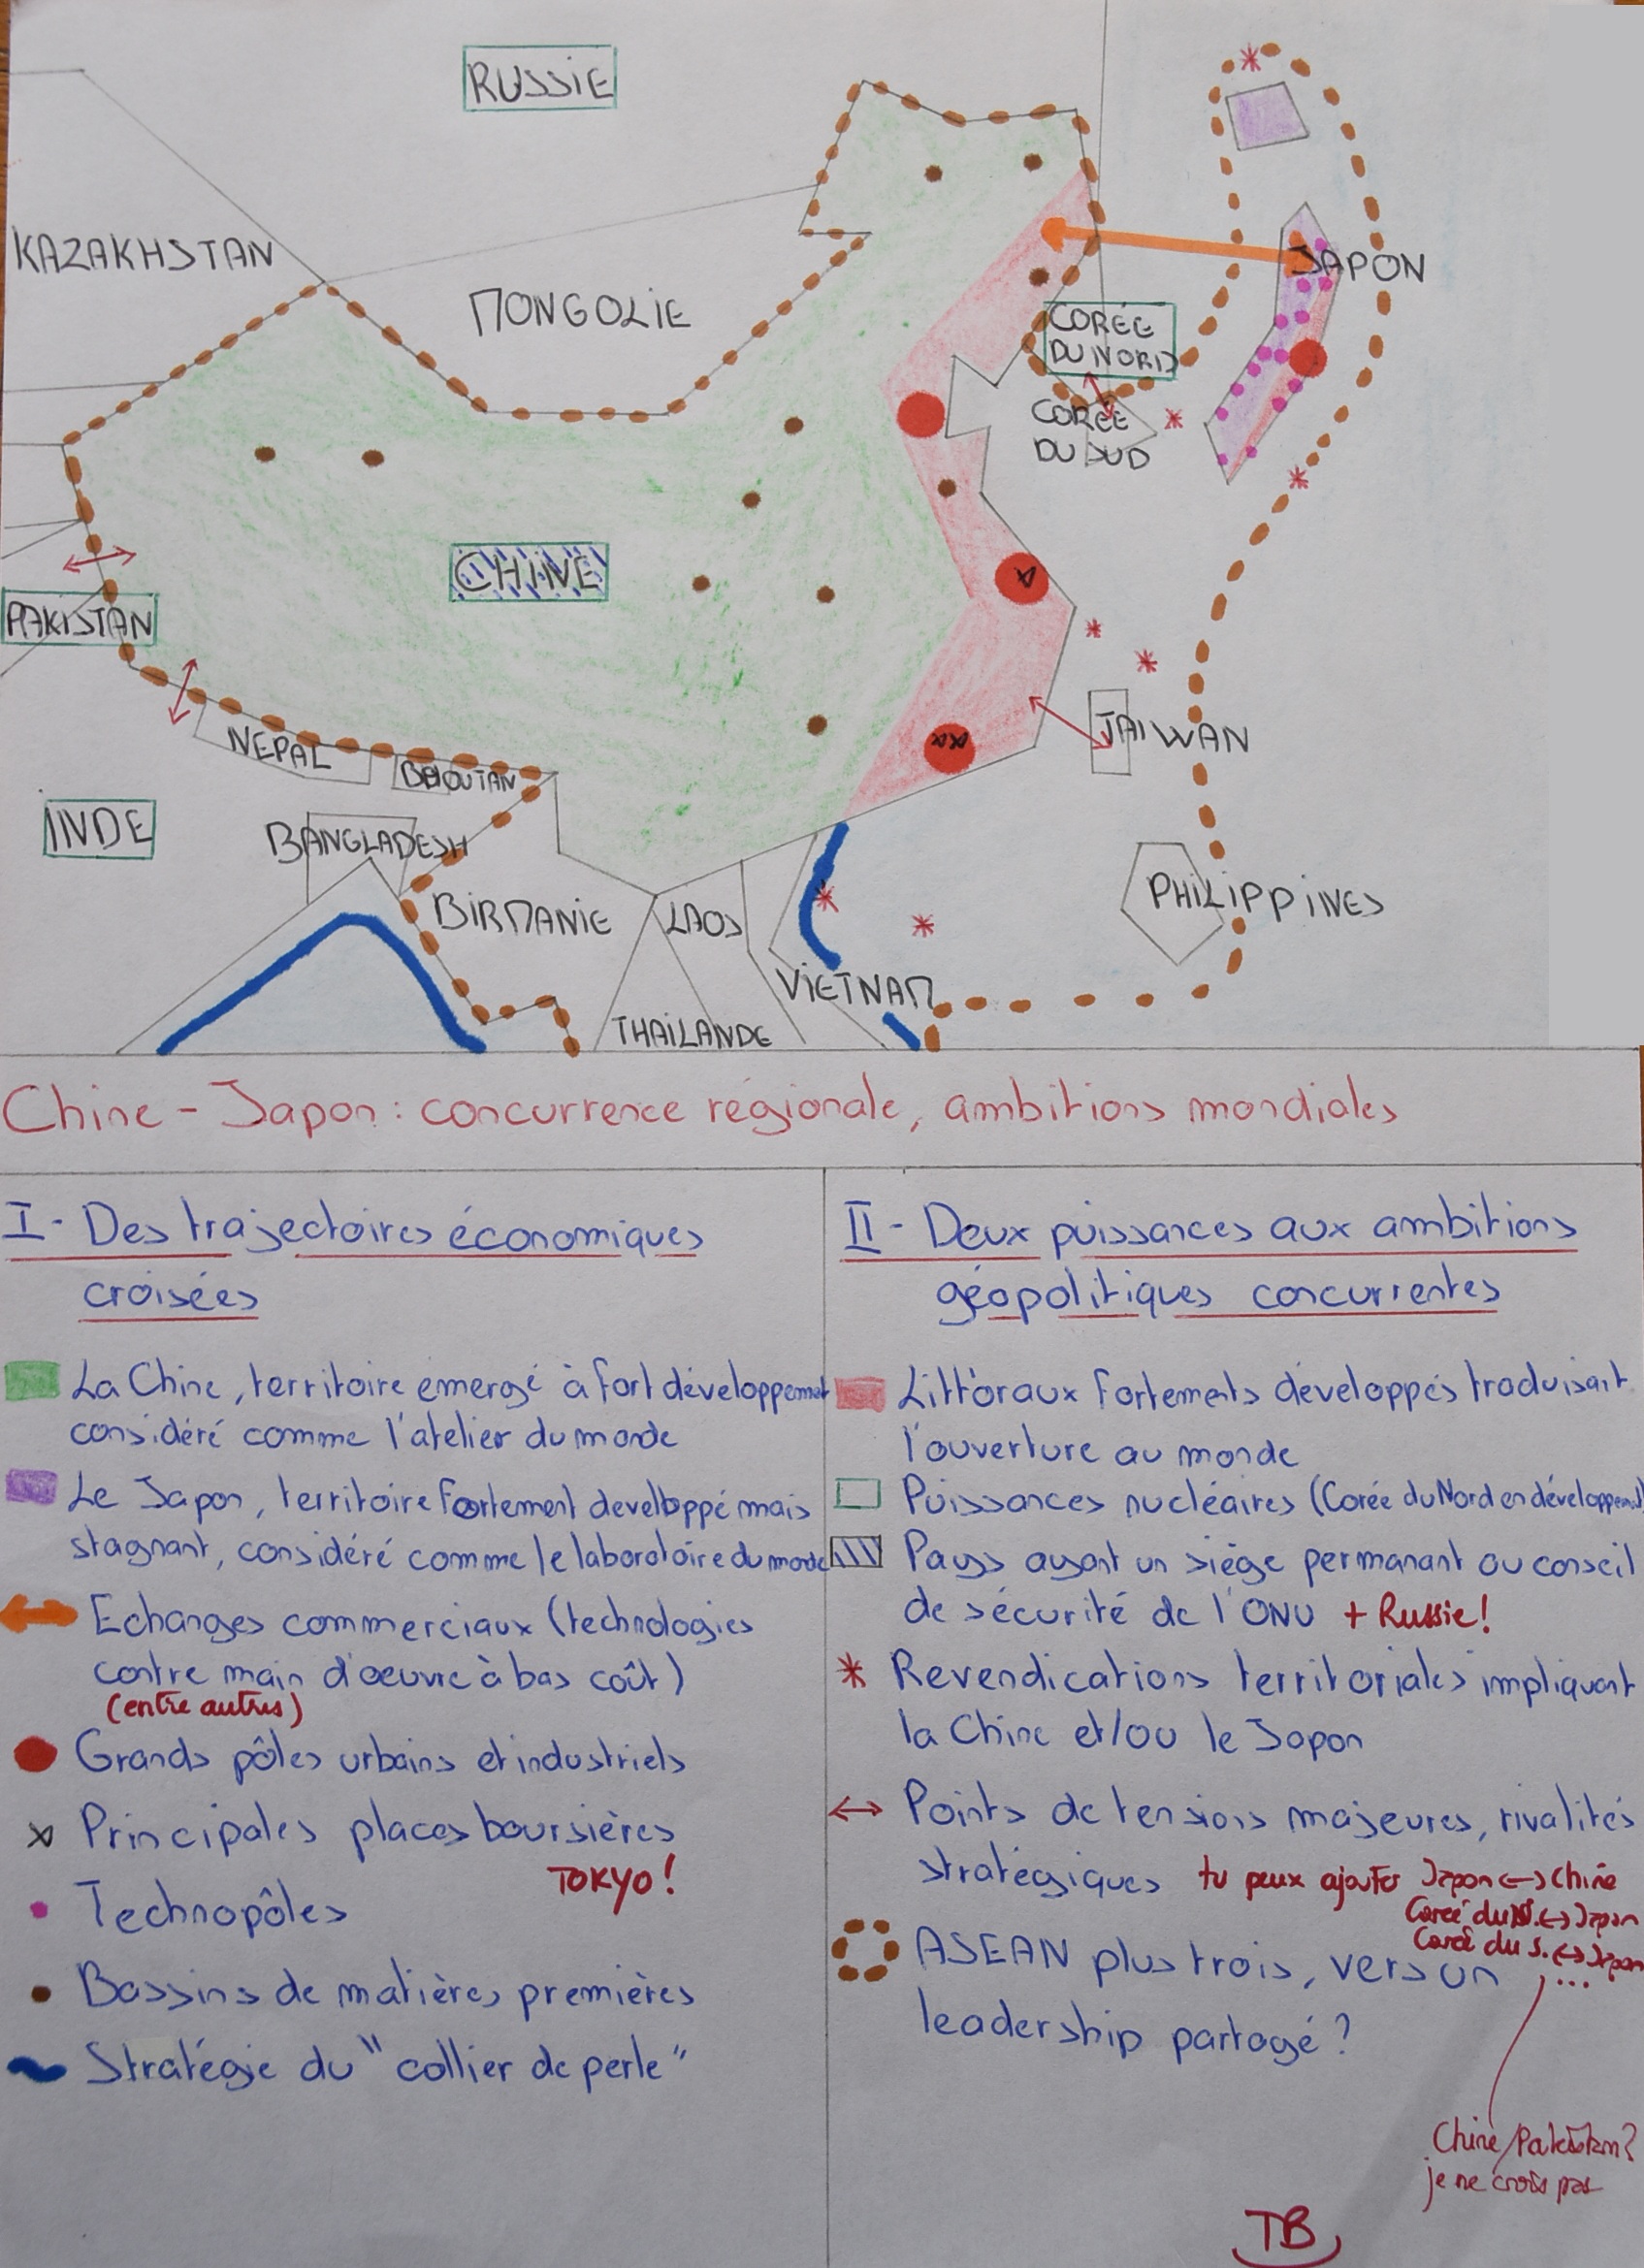 RUSSIE
KAZAKHSTAN
MONGOLIE
JAPON
CORÉE
DU NORD
CORÉE
DU SUD
CHINE
PAKISTAN
NEPAL
BHOUTAN
TAIWAN
INDE
BANGLADESH
BIRMANIE
LAOS
PHILIPPINES
VIETNAM
THAILANDE
Chine - Japon : concurrence régionale, ambitions mondiales
I - Des trajectoires économiques
croisées
La Chine, territoire émergé à fort développement
considéré comme l'atelier du monde
Le Japon, territoire fortement developpé mais
stagnant, considéré comme le laboratoire du monde
Echanges commerciaux (technologies
contre main d'oeuvre à bas coût)
(entre autres)
Grands pôles urbains et industriels
Principales places boursières
TOKYO !
Technopôles
Bassins de matières premières
Stratégie du "collier de perle"
II - Deux puissances aux ambitions
géopolitiques concurrentes
Littoraux fortements développés traduisant
l'ouverture au monde
Puissances nucléaires (Corée du Nord en développement)
Pays ayant un siège permanant au conseil
de sécurité de l'ONU + Russie !
Revendications territoriales impliquant
la Chine et/ou le Japon
Points de tensions majeures, rivalités
stratégiques tu peux ajouter Japon <-> Chine
Corée du N. <-> Japon
Corée du S. <-> Japon
...
ASEAN plus trois, vers un
leadership partagé ?
Chine/Pakistan ?
je ne crois pas
TB